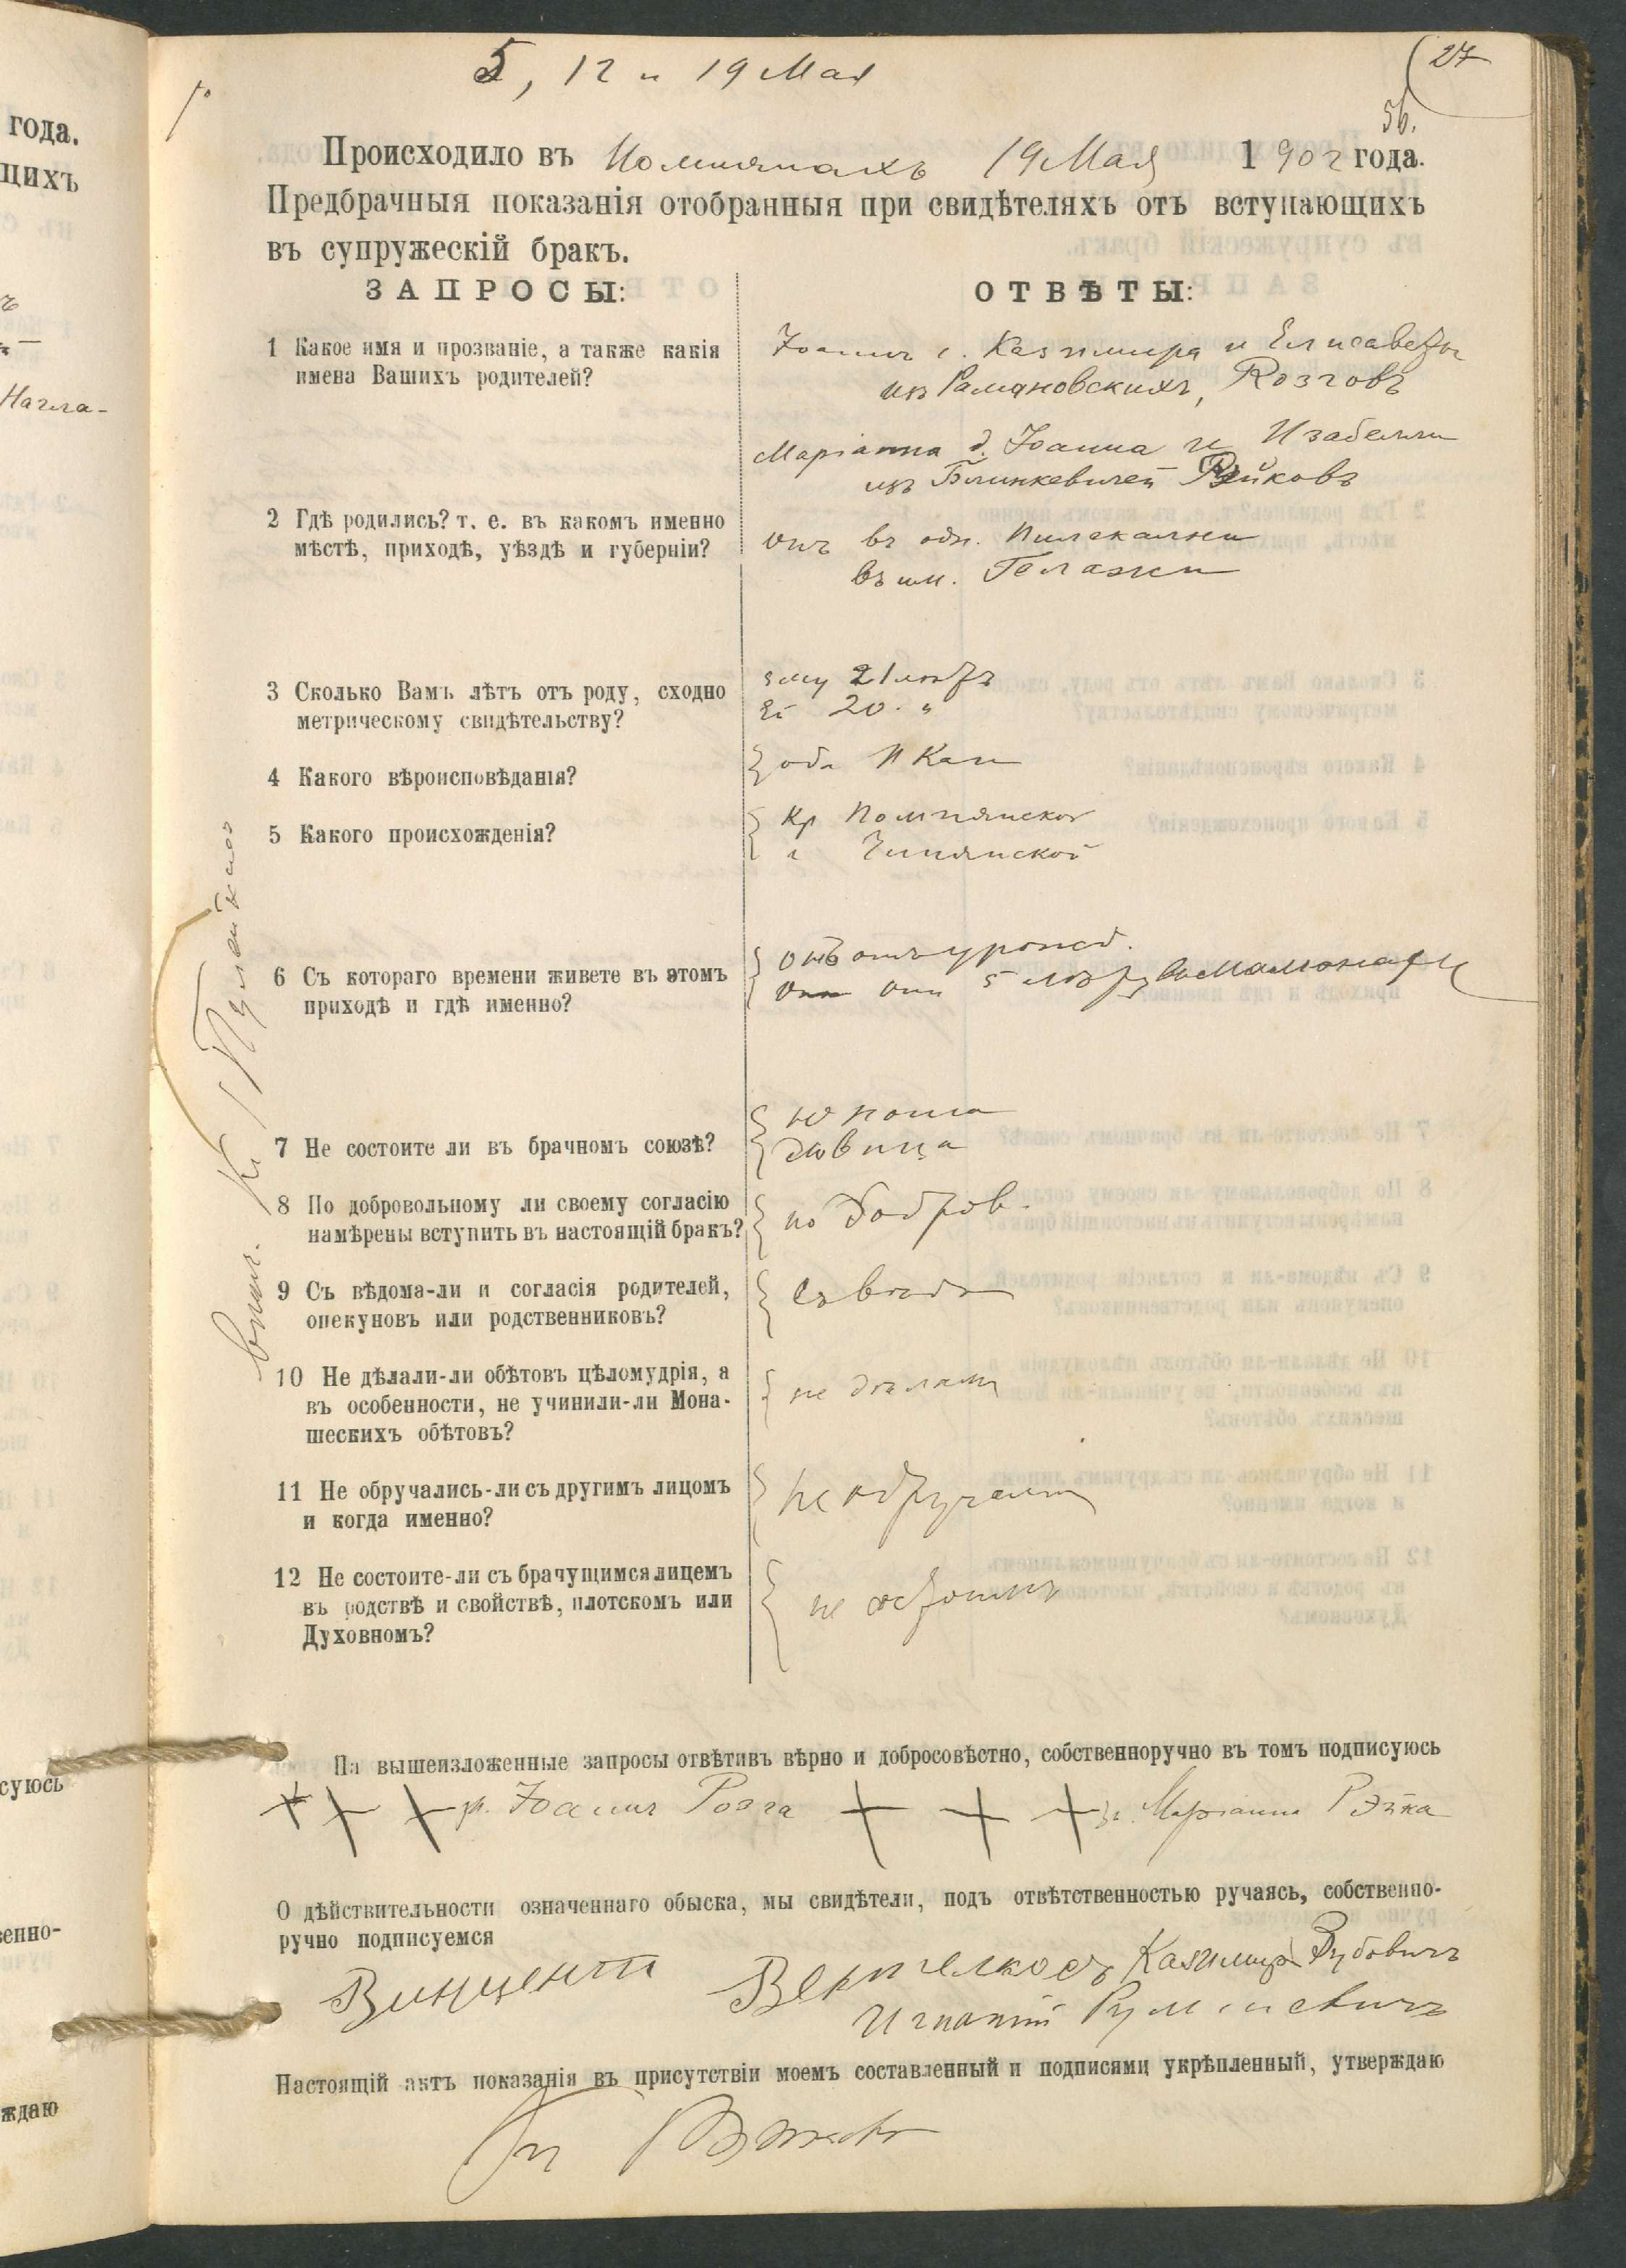 года.
щихъ
Нагла-
суюсь
венно-
ждаю
5, 12 и 19 Мая
27
56.
Происходило въ Помпянахъ 19 Мая 1902 года.
Предбрачныя показанія отобранныя при свидѣтеляхъ отъ вступающихъ
въ супружескій бракъ.
ЗАПРОСЫ:
ОТВѢТЫ:
1 Какое имя и прозваніе, а также какія
имена Вашихъ родителей?
Іоаннъ с. Казимира и Елисаветы
изъ Рамановскихъ, Розговъ
Маріанна д. Іоанна и Изабелли
изъ Блинкевичей Рэйковъ
2 Гдѣ родились? т. е. въ какомъ именно
мѣстѣ, приходѣ, уѣздѣ и губерніи?
Онъ въ одн. Пилекални
въ им. Гелажи
3 Сколько Вамъ лѣтъ отъ роду, сходно
метрическому свидѣтельству?
ему 21 лѣтъ
Ей 20 "
4 Какого вѣроисповѣданія?
оба Р Кат
5 Какого происхожденія?
Кр Помпянской
6 Съ котораго времени живете въ этомъ
приходѣ и гдѣ именно?
Онъ отъ урожд.
5 лѣтъ
7 Не состоите ли въ брачномъ союзѣ?
юноша
дѣвица
8 По добровольному ли своему согласію
намѣрены вступить въ настоящій бракъ?
по добров.
9 Съ вѣдома-ли и согласія родителей,
опекуновъ или родственниковъ?
Съ вѣдома
10 Не дѣлали-ли обѣтовъ цѣломудрія, а
въ особенности, не учинили-ли Мона-
шескихъ обѣтовъ?
не дѣлали
11 Не обручались-ли съ другимъ лицомъ
и когда именно?
не обручались
12 Не состоите-ли съ брачущимся лицемъ
въ родствѣ и свойствѣ, плотскомъ или
Духовномъ?
не состоимъ
На вышеизложенные запросы отвѣтивъ вѣрно и добросовѣстно, собственноручно въ томъ подписуюсь
+ + + Іоаннъ Розга + + + Маріанна Рэйка
О дѣйствительности означеннаго обыска, мы свидѣтели, подъ отвѣтственностью ручаясь, собственно-
ручно подписуемся
Винцентъ Казимиръ Зубовичъ
Игнатій
Настоящій актъ показанія въ присутствіи моемъ составленный и подписями укрѣпленный, утверждаю